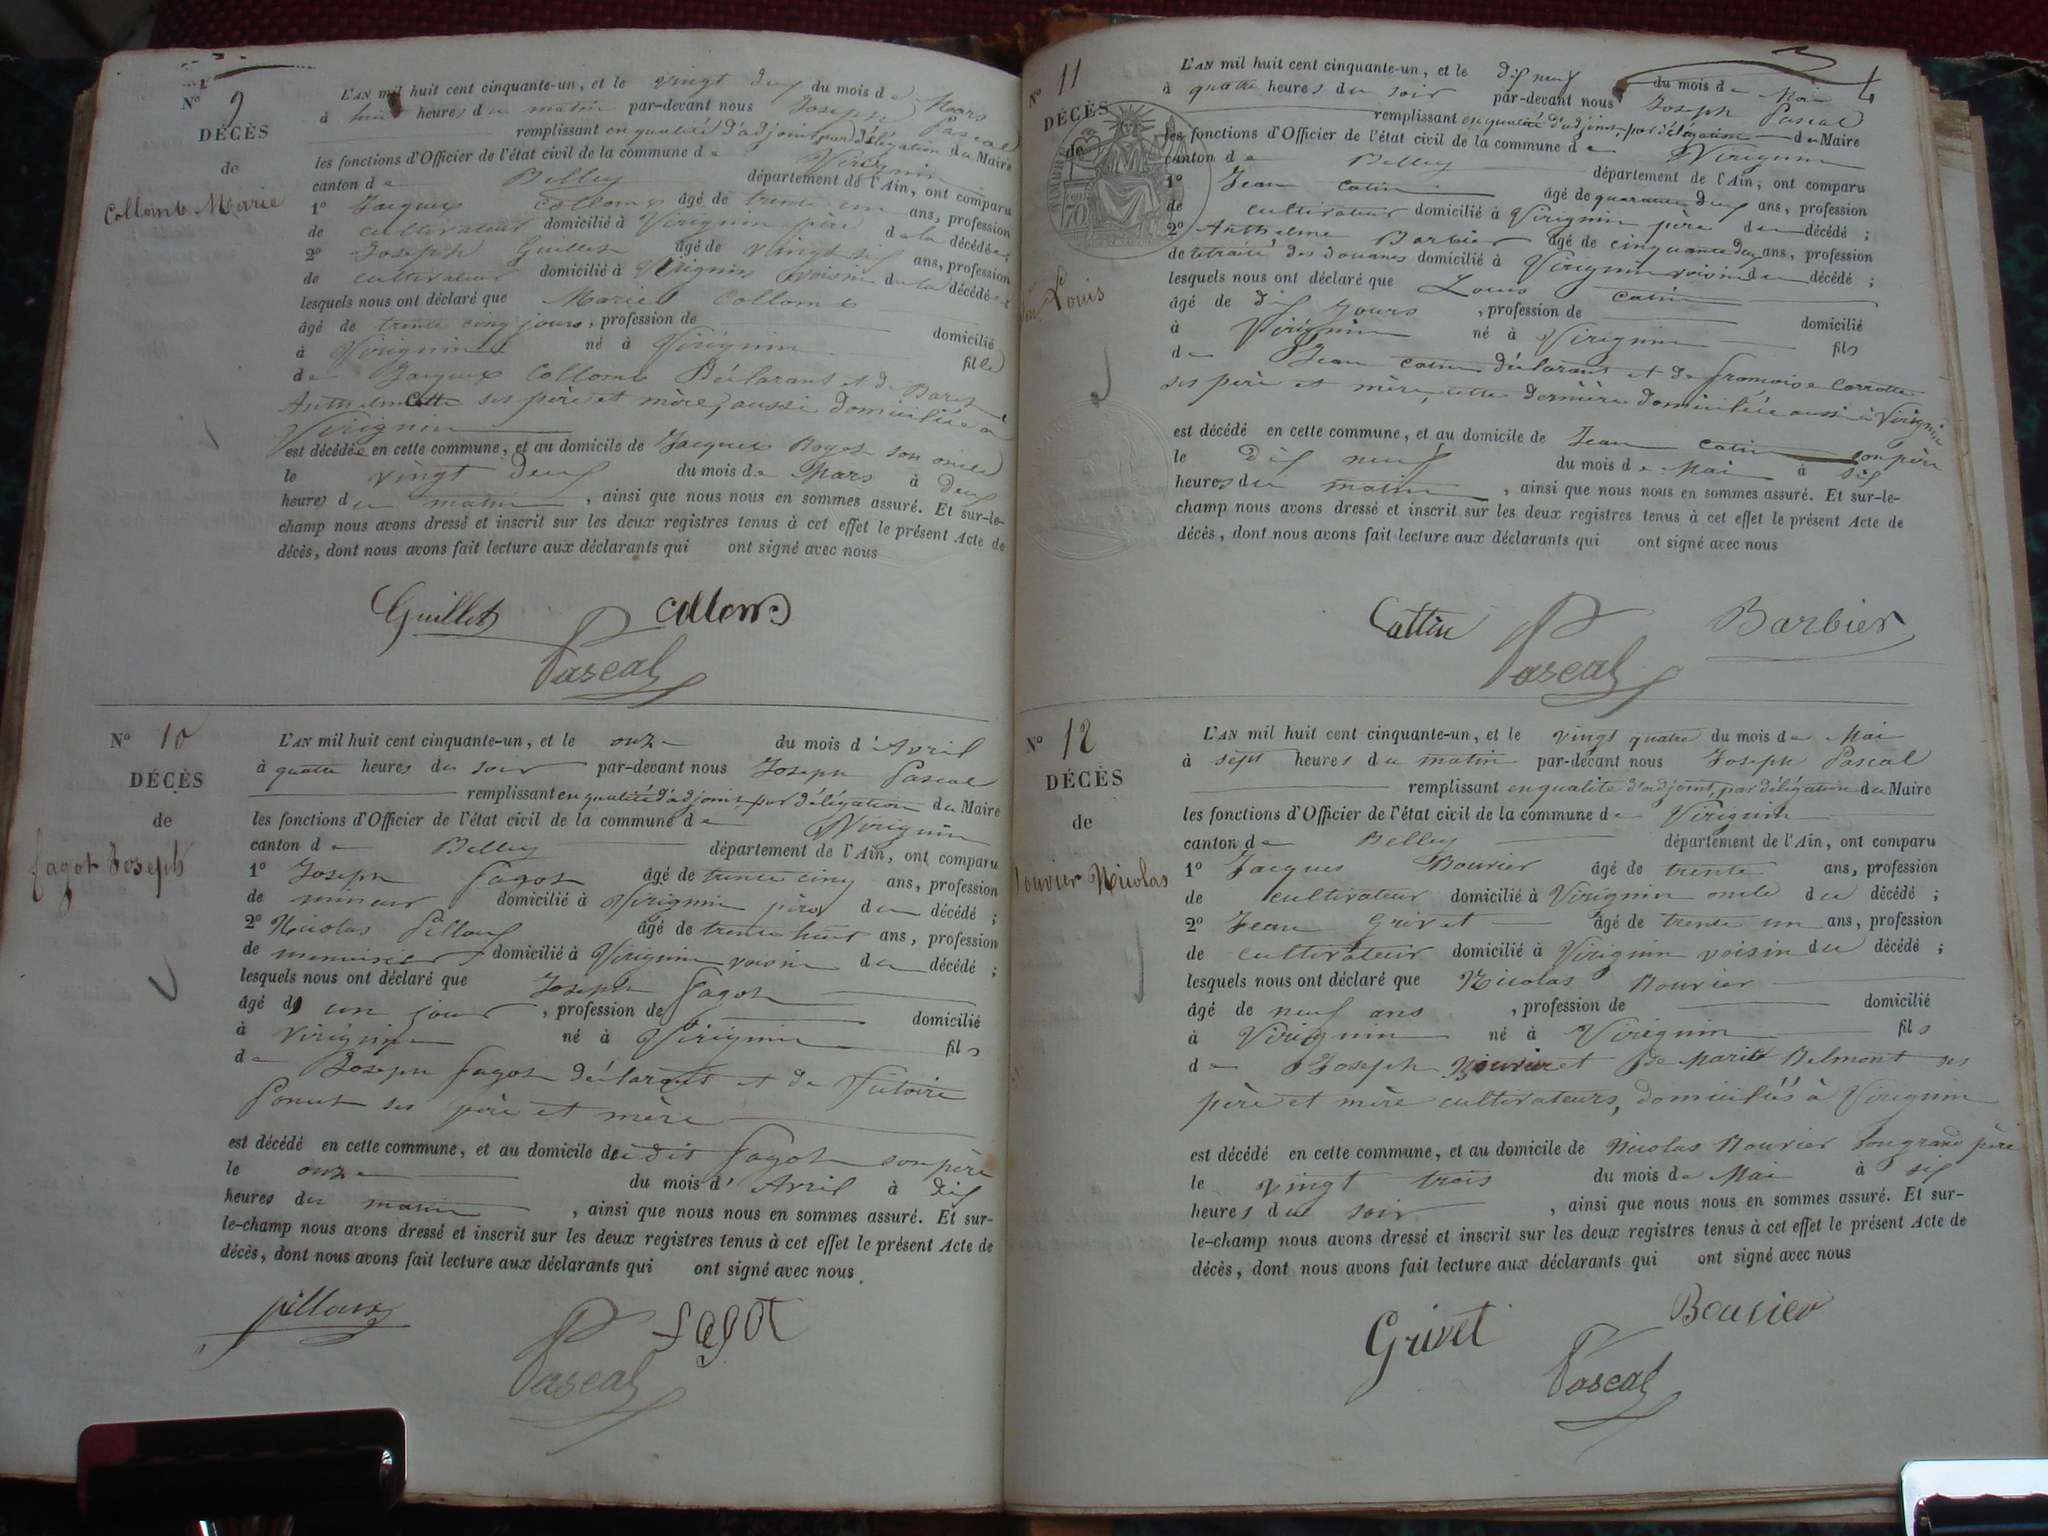 Nº 9
DÉCÈS
de
Collomb Marie
L'AN mil huit cent cinquante-un, et le vingt deux du mois de Mars
à huit heures du matin par-devant nous Joseph Pascal
remplissant en qualité d'adjoint, par délégation du Maire
les fonctions d'Officier de l'état civil de la commune de Virignin
canton de Belley département de l'Ain, ont comparu
1º Jacques Collomb âgé de trente un ans, profession
de cultivateur domicilié à Virignin père de la décédée ;
2º Joseph Guillet âgé de vingt six ans, profession
de cultivateur domicilié à Virignin voisin de la décédée ;
lesquels nous ont déclaré que Marie Collomb
âgé de trente cinq jours, profession de domicilié
à Virignin né à Virignin fille
de Jacques Collomb Déclarant et de
Anthelmette ses père et mère, aussi domiciliée à
Virignin
est décédée en cette commune, et au domicile de Jacques son oncle
le vingt deux du mois de Mars à deux
heures du matin, ainsi que nous nous en sommes assuré. Et sur-le-
champ nous avons dressé et inscrit sur les deux registres tenus à cet effet le présent Acte de
décès, dont nous avons fait lecture aux déclarants qui ont signé avec nous
Guillet Collomb
Pascal
Nº 10
DÉCÈS
de
fagot Joseph
L'AN mil huit cent cinquante-un, et le onze du mois d'Avril
à quatre heures du soir par-devant nous Joseph Pascal
remplissant en qualité d'adjoint, par délégation du Maire
les fonctions d'Officier de l'état civil de la commune de Virignin
canton de Belley département de l'Ain, ont comparu
1º Joseph fagot âgé de trente cinq ans, profession
de mineur domicilié à Virignin père du décédé ;
2º Nicolas Pilloux âgé de trente huit ans, profession
de menuisier domicilié à Virignin voisin du décédé ;
lesquels nous ont déclaré que Joseph fagot
âgé de un jour, profession de domicilié
à Virignin né à Virignin fils
de Joseph fagot déclarant et de Victoire
ses père et mère
est décédé en cette commune, et au domicile du dit fagot son père
le onze du mois d'Avril à dix
heures du matin, ainsi que nous nous en sommes assuré. Et sur-
le-champ nous avons dressé et inscrit sur les deux registres tenus à cet effet le présent Acte de
décès, dont nous avons fait lecture aux déclarants qui ont signé avec nous.
pilloux fagot
Pascal
Nº 11
DÉCÈS
de
Louis
L'AN mil huit cent cinquante-un, et le dix neuf du mois de Mai
à quatre heures du soir par-devant nous Joseph Pascal
remplissant en qualité d'adjoint, par délégation du Maire
les fonctions d'Officier de l'état civil de la commune de Virignin
canton de Belley département de l'Ain, ont comparu
1º Jean catin âgé de quarante deux ans, profession
de cultivateur domicilié à Virignin père du décédé ;
2º Anthelme Barbier âgé de cinquante deux ans, profession
de retraité des douanes domicilié à Virignin voisin du décédé ;
lesquels nous ont déclaré que Louis catin
âgé de dix jours, profession de domicilié
à Virignin né à Virignin fils
de Jean catin déclarant et de françoise Carrotte
ses père et mère, cette dernière domiciliée aussi à Virignin
est décédé en cette commune, et au domicile de Jean catin son père
le dix neuf du mois de Mai à dix
heures du matin, ainsi que nous nous en sommes assuré. Et sur-le-
champ nous avons dressé et inscrit sur les deux registres tenus à cet effet le présent Acte de
décès, dont nous avons fait lecture aux déclarants qui ont signé avec nous
Cattin Barbier
Pascal
Nº 12
DÉCÈS
de
Bouvier Nicolas
L'AN mil huit cent cinquante-un, et le vingt quatre du mois de Mai
à sept heures du matin par-devant nous Joseph Pascal
remplissant en qualité d'adjoint, par délégation du Maire
les fonctions d'Officier de l'état civil de la commune de Virignin
canton de Belley département de l'Ain, ont comparu
1º Jacques Bouvier âgé de trente ans, profession
de cultivateur domicilié à Virignin oncle du décédé ;
2º Jean Grivet âgé de trente un ans, profession
de cultivateur domicilié à Virignin voisin du décédé ;
lesquels nous ont déclaré que Nicolas Bouvier
âgé de neuf ans, profession de domicilié
à Virignin né à Virignin fils
de Joseph Bouvier et de Marie Belmont ses
père et mère cultivateurs, domiciliés à Virignin
est décédé en cette commune, et au domicile de Nicolas Bouvier son grand père
le vingt trois du mois de Mai à six
heures du soir, ainsi que nous nous en sommes assuré. Et sur-
le-champ nous avons dressé et inscrit sur les deux registres tenus à cet effet le présent Acte de
décès, dont nous avons fait lecture aux déclarants qui ont signé avec nous
Grivet Bouvier
Pascal